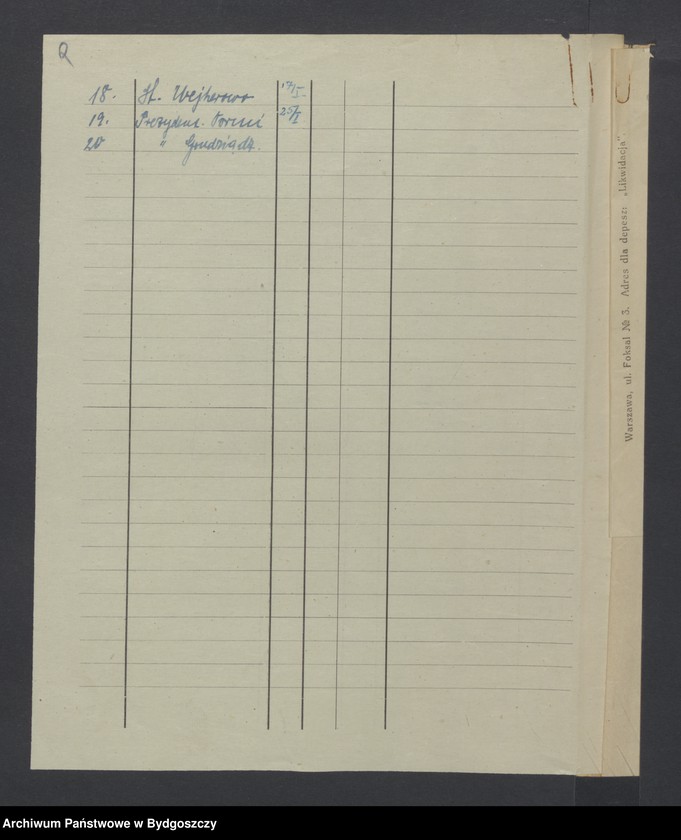 2
18. St. Wejherowo 17/I
19. Prezydent. Toruń 25/I
20 " Grudziądz.
Warszawa, ul. Foksal № 3. Adres dla depesz: „Likwidacja”.
Archiwum Państwowe w Bydgoszczy